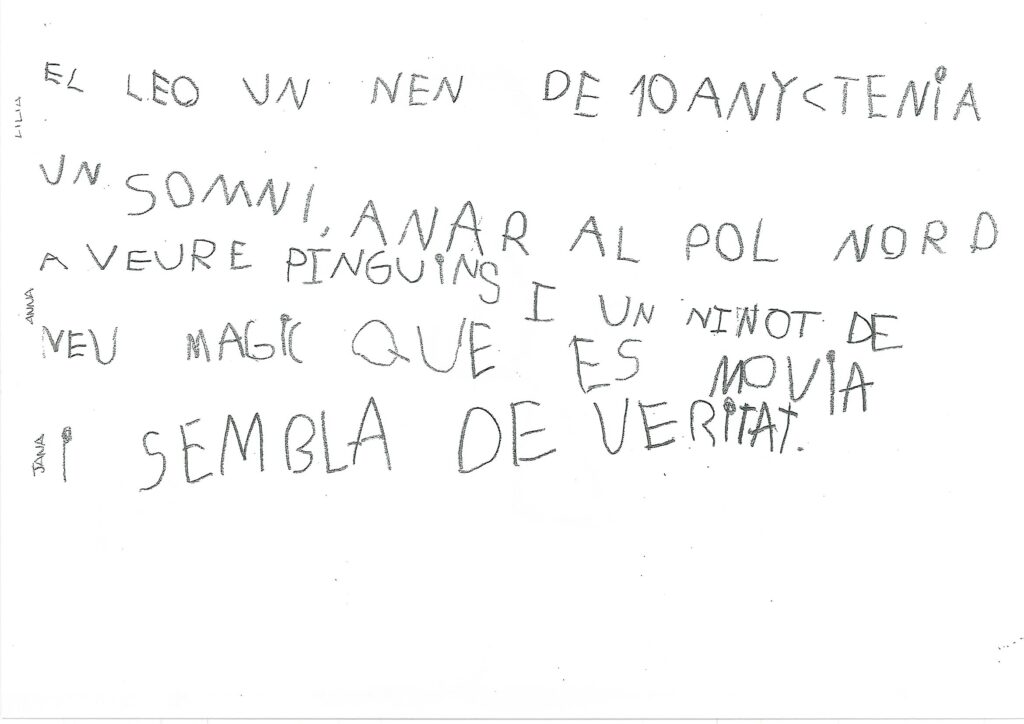 EL LEO UN NEN DE 10 ANYS TENIA
UN SOMNI, ANAR AL POL NORD
A VEURE PINGUINS I UN NINOT DE
NEU MAGIC QUE ES MOVIA
I SEMBLA DE VERITAT.
LILIA
ANNA
JANA